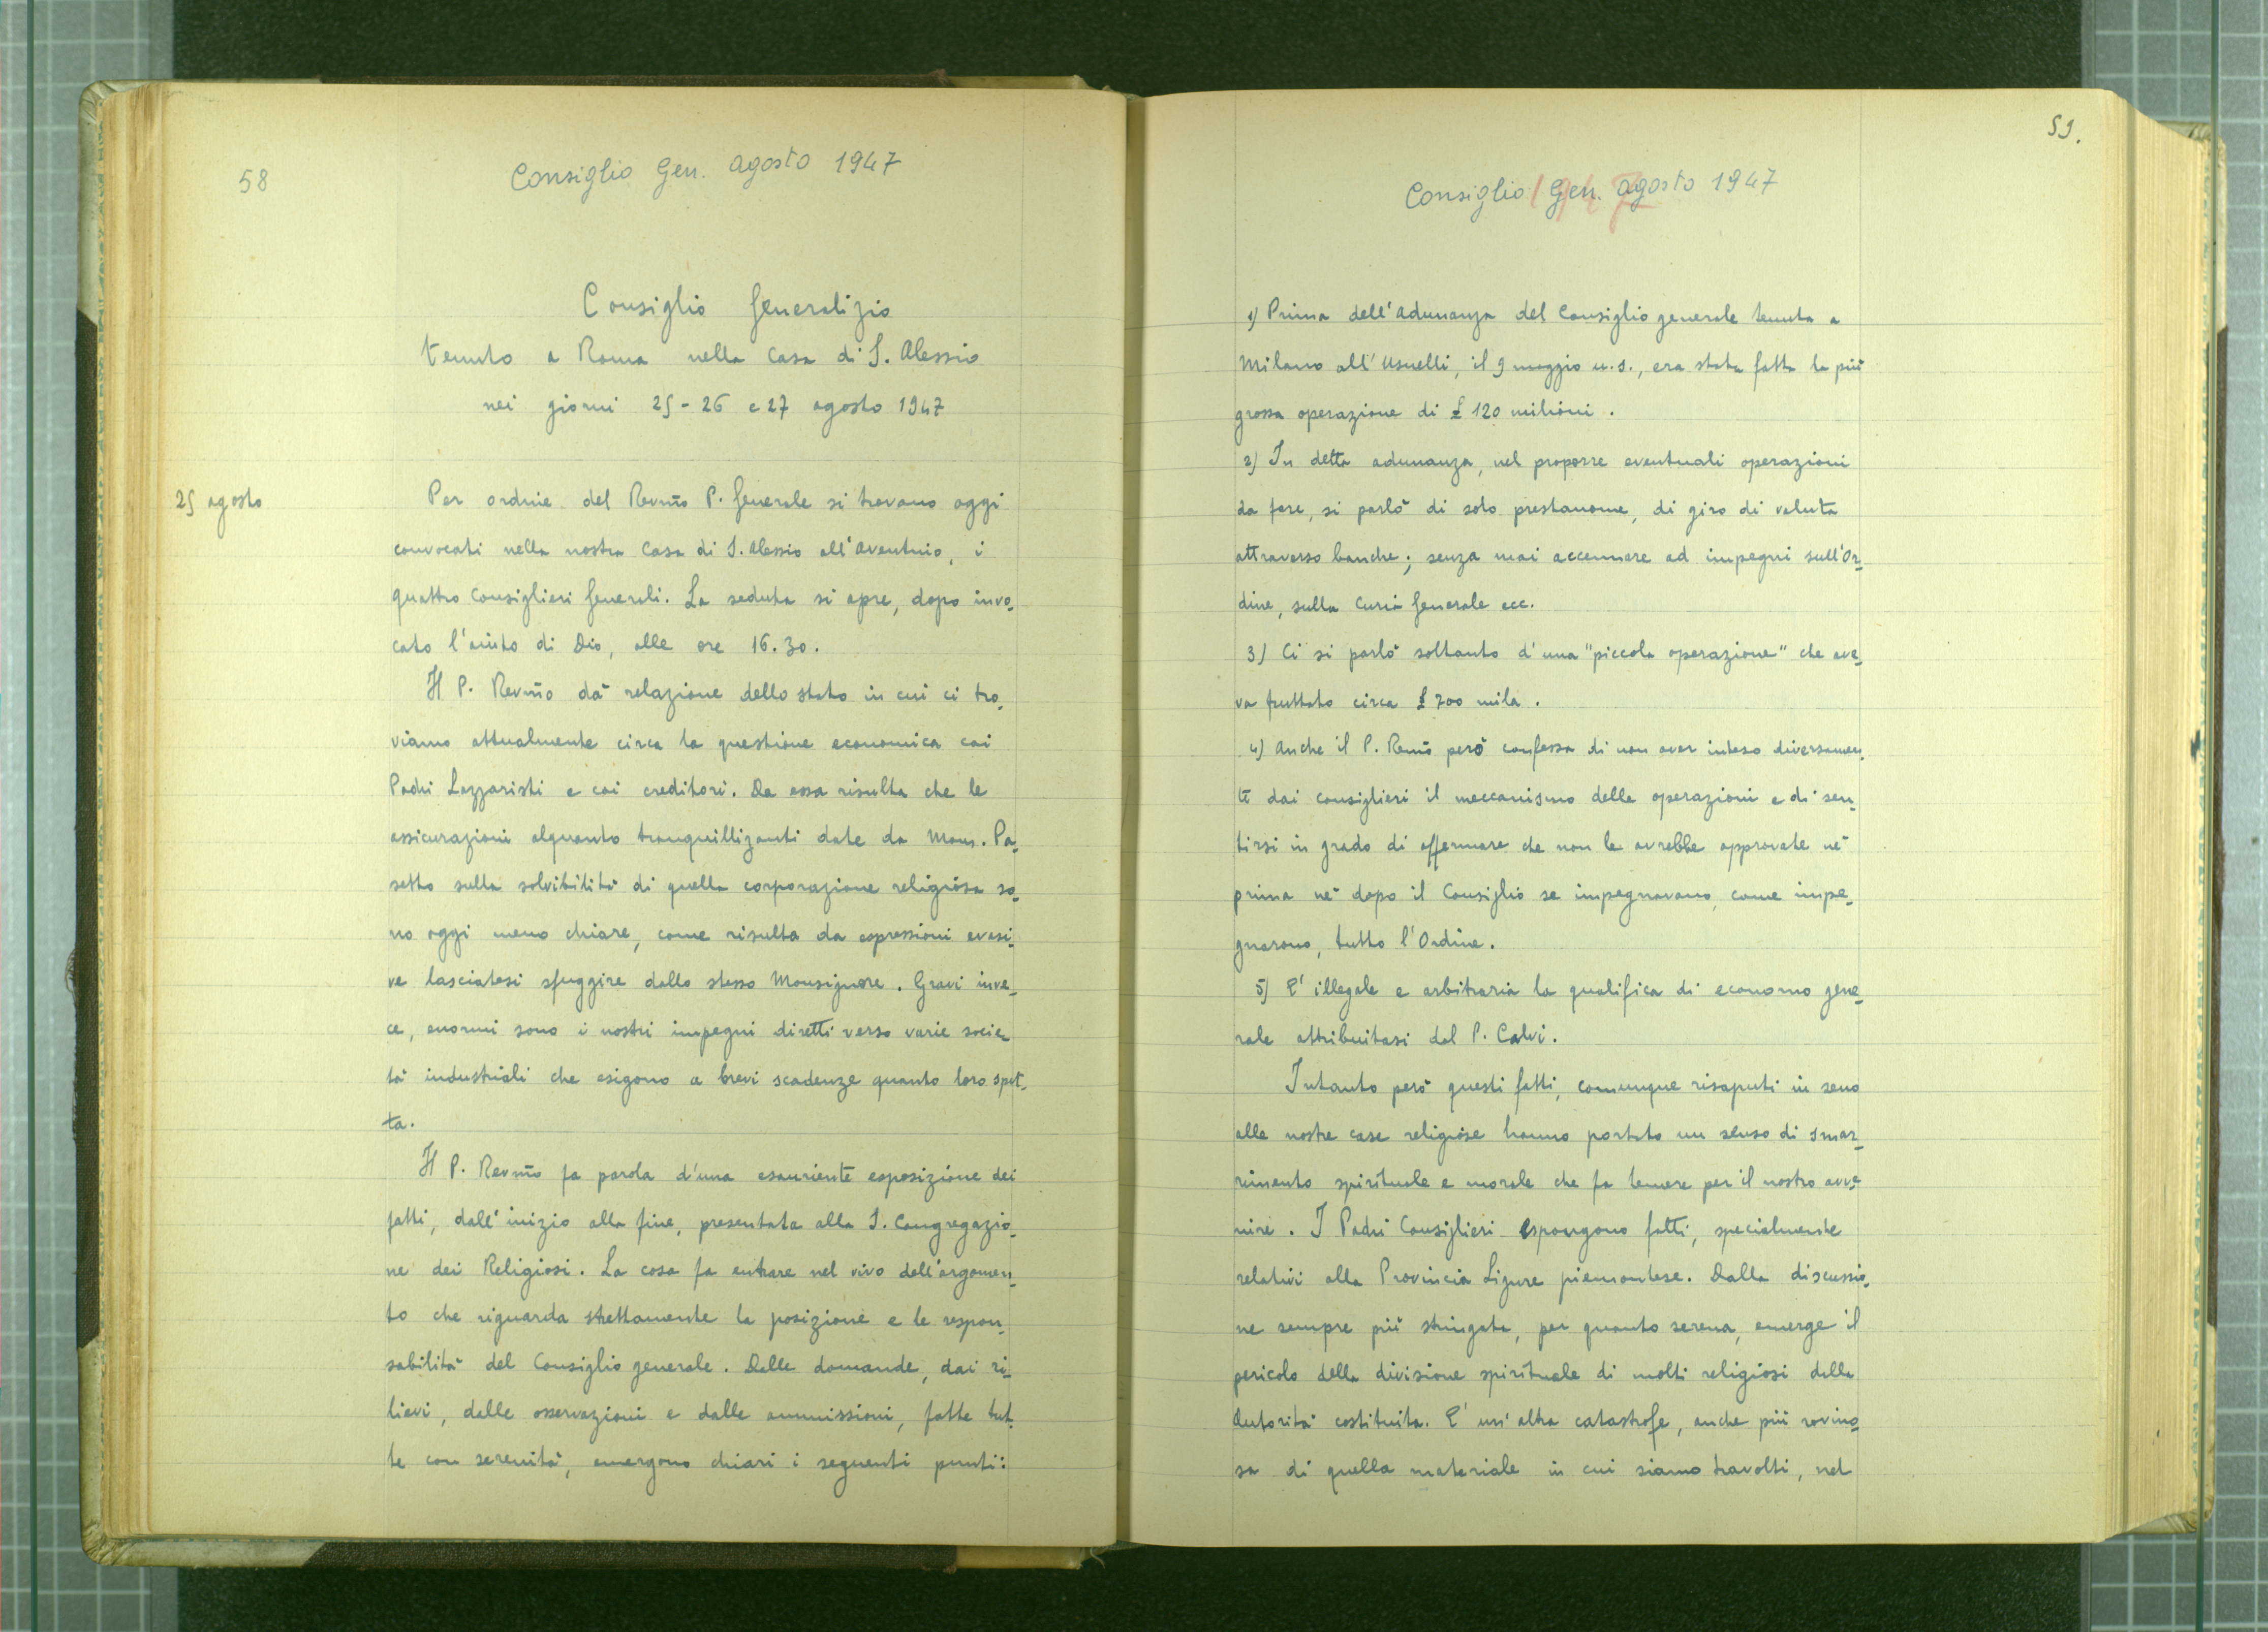 58
Consiglio Gen. Agosto 1947
Consiglio Generalizio
tenuto a Roma nella Casa di S. Alessio
nei giorni 25-26 e 27 agosto 1947
25 agosto
Per ordine del Revm̃o P. Generale si trovano oggi
convocati nella nostra Casa di S. Alessio all'Aventino, i
quattro Consiglieri Generali. La seduta si apre, dopo invo-
cato l'aiuto di Dio, alle ore 16.30.
Il P. Revm̃o dà relazione dello stato in cui ci tro-
viamo attualmente circa la questione economica coi
Padri Lazzaristi e coi creditori. Da essa risulta che le
assicurazioni alquanto tranquillizanti date da Mons. Pa-
setto sulla solvibilità di quella corporazione religiosa so-
no oggi meno chiare, come risulta da espressioni evasi-
ve lasciatesi sfuggire dallo stesso Monsignore. Gravi inve-
ce, enormi sono i nostri impegni diretti verso varie socie-
tà industriali che esigono a brevi scadenze quanto loro spet-
ta.
Il P. Revm̃o fa parola d'una esauriente esposizione dei
fatti, dall'inizio alla fine, presentata alla S. Congregazio-
ne dei Religiosi. La cosa fa entrare nel vivo dell'argomen-
to che riguarda strettamente la posizione e le respon-
sabilità del Consiglio generale. Dalle domande, dai ri-
lievi, dalle osservazioni e dalle ammissioni, fatte tut-
te con serenità, emergono chiari i seguenti punti:
59.
1947
Consiglio Gen. Agosto 1947
1) Prima dell'Adunanza del Consiglio generale tenuta a
Milano all'Usuelli, il 9 maggio u.s., era stata fatta la più
grossa operazione di £ 120 milioni.
2) In detta adunanza, nel proporre eventuali operazioni
da fare, si parlò di solo prestanome, di giro di valuta
attraverso banche; senza mai accennare ad impegni sull'Or-
dine, sulla Curia Generale ecc.
3) Ci si parlò soltanto d'una "piccola operazione" che ave-
va fruttato circa £ 700 mila.
4) Anche il P. Revm̃o però confessa di non aver inteso diversamen-
te dai consiglieri il meccanismo delle operazioni e di sen-
tirsi in grado di affermare che non le avrebbe approvate nè
prima nè dopo il Consiglio se impegnavano, come impe-
gnarono, tutto l'Ordine.
5) E' illegale e arbitraria la qualifica di economo gene-
rale attribuitasi dal P. Calvi.
Intanto però questi fatti, comunque risaputi in seno
alle nostre case religiose hanno portato un senso di smar-
rimento spirituale e morale che fa temere per il nostro avve-
nire. I Padri Consiglieri espongono fatti, specialmente
relativi alla Provincia Ligure piemontese. Dalla discussio-
ne sempre più stringata, per quanto serena, emerge il
pericolo della divisione spirituale di molti religiosi dalla
Autorità costituita. E' un'altra catastrofe, anche più rovino-
sa di quella materiale in cui siamo travolti, nel